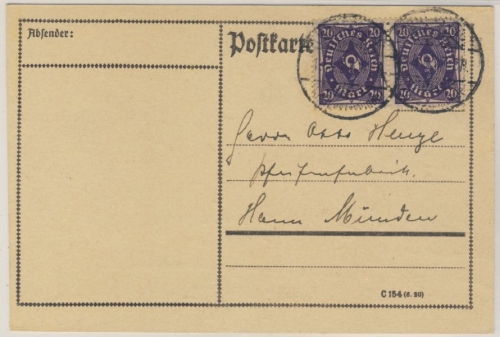 Absender:
Postkarte
20 20
Deutsches Reich
Mark
20 20
20 20
Deutsches Reich
Mark
20 20
Herrn Otto Henze
Pfeifenfabrik.
Hann Münden
C 154 (6. 20)